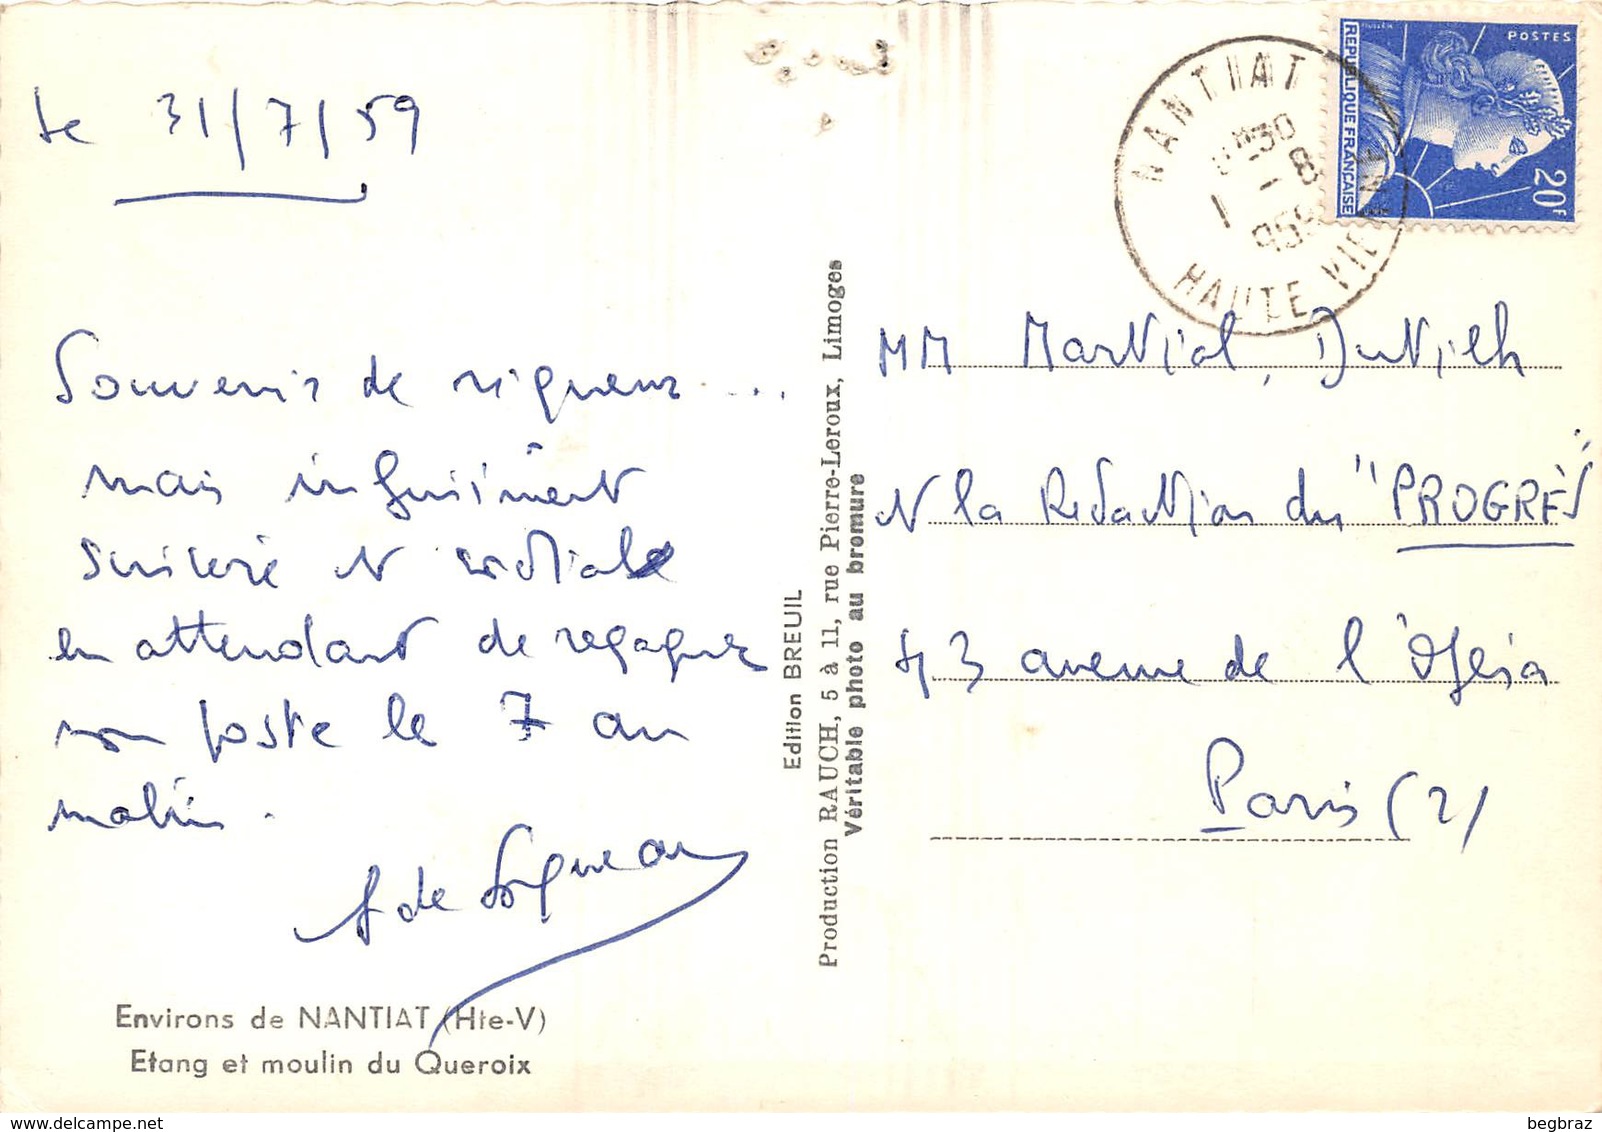 le 31/7/59
Souvenir de rigueur ...
mais infiniment
sincère et cordiale
en attendant de regagner
mon poste le 7 au
matin.
Environs de NANTIAT (Hte-V)
Etang et moulin du Queroix
Edition BREUIL
Production RAUCH, 5 à 11, rue Pierre-Leroux, Limoges
Véritable photo au bromure
NANTIAT
30
1 - 8
HAUTE VIENNE
POSTES
REPUBLIQUE FRANÇAISE
20F
MM Martial, Dutilh
et la Rédaction du "PROGRÈS"
43 avenue de l'Opéra
Paris (2)
begbraz